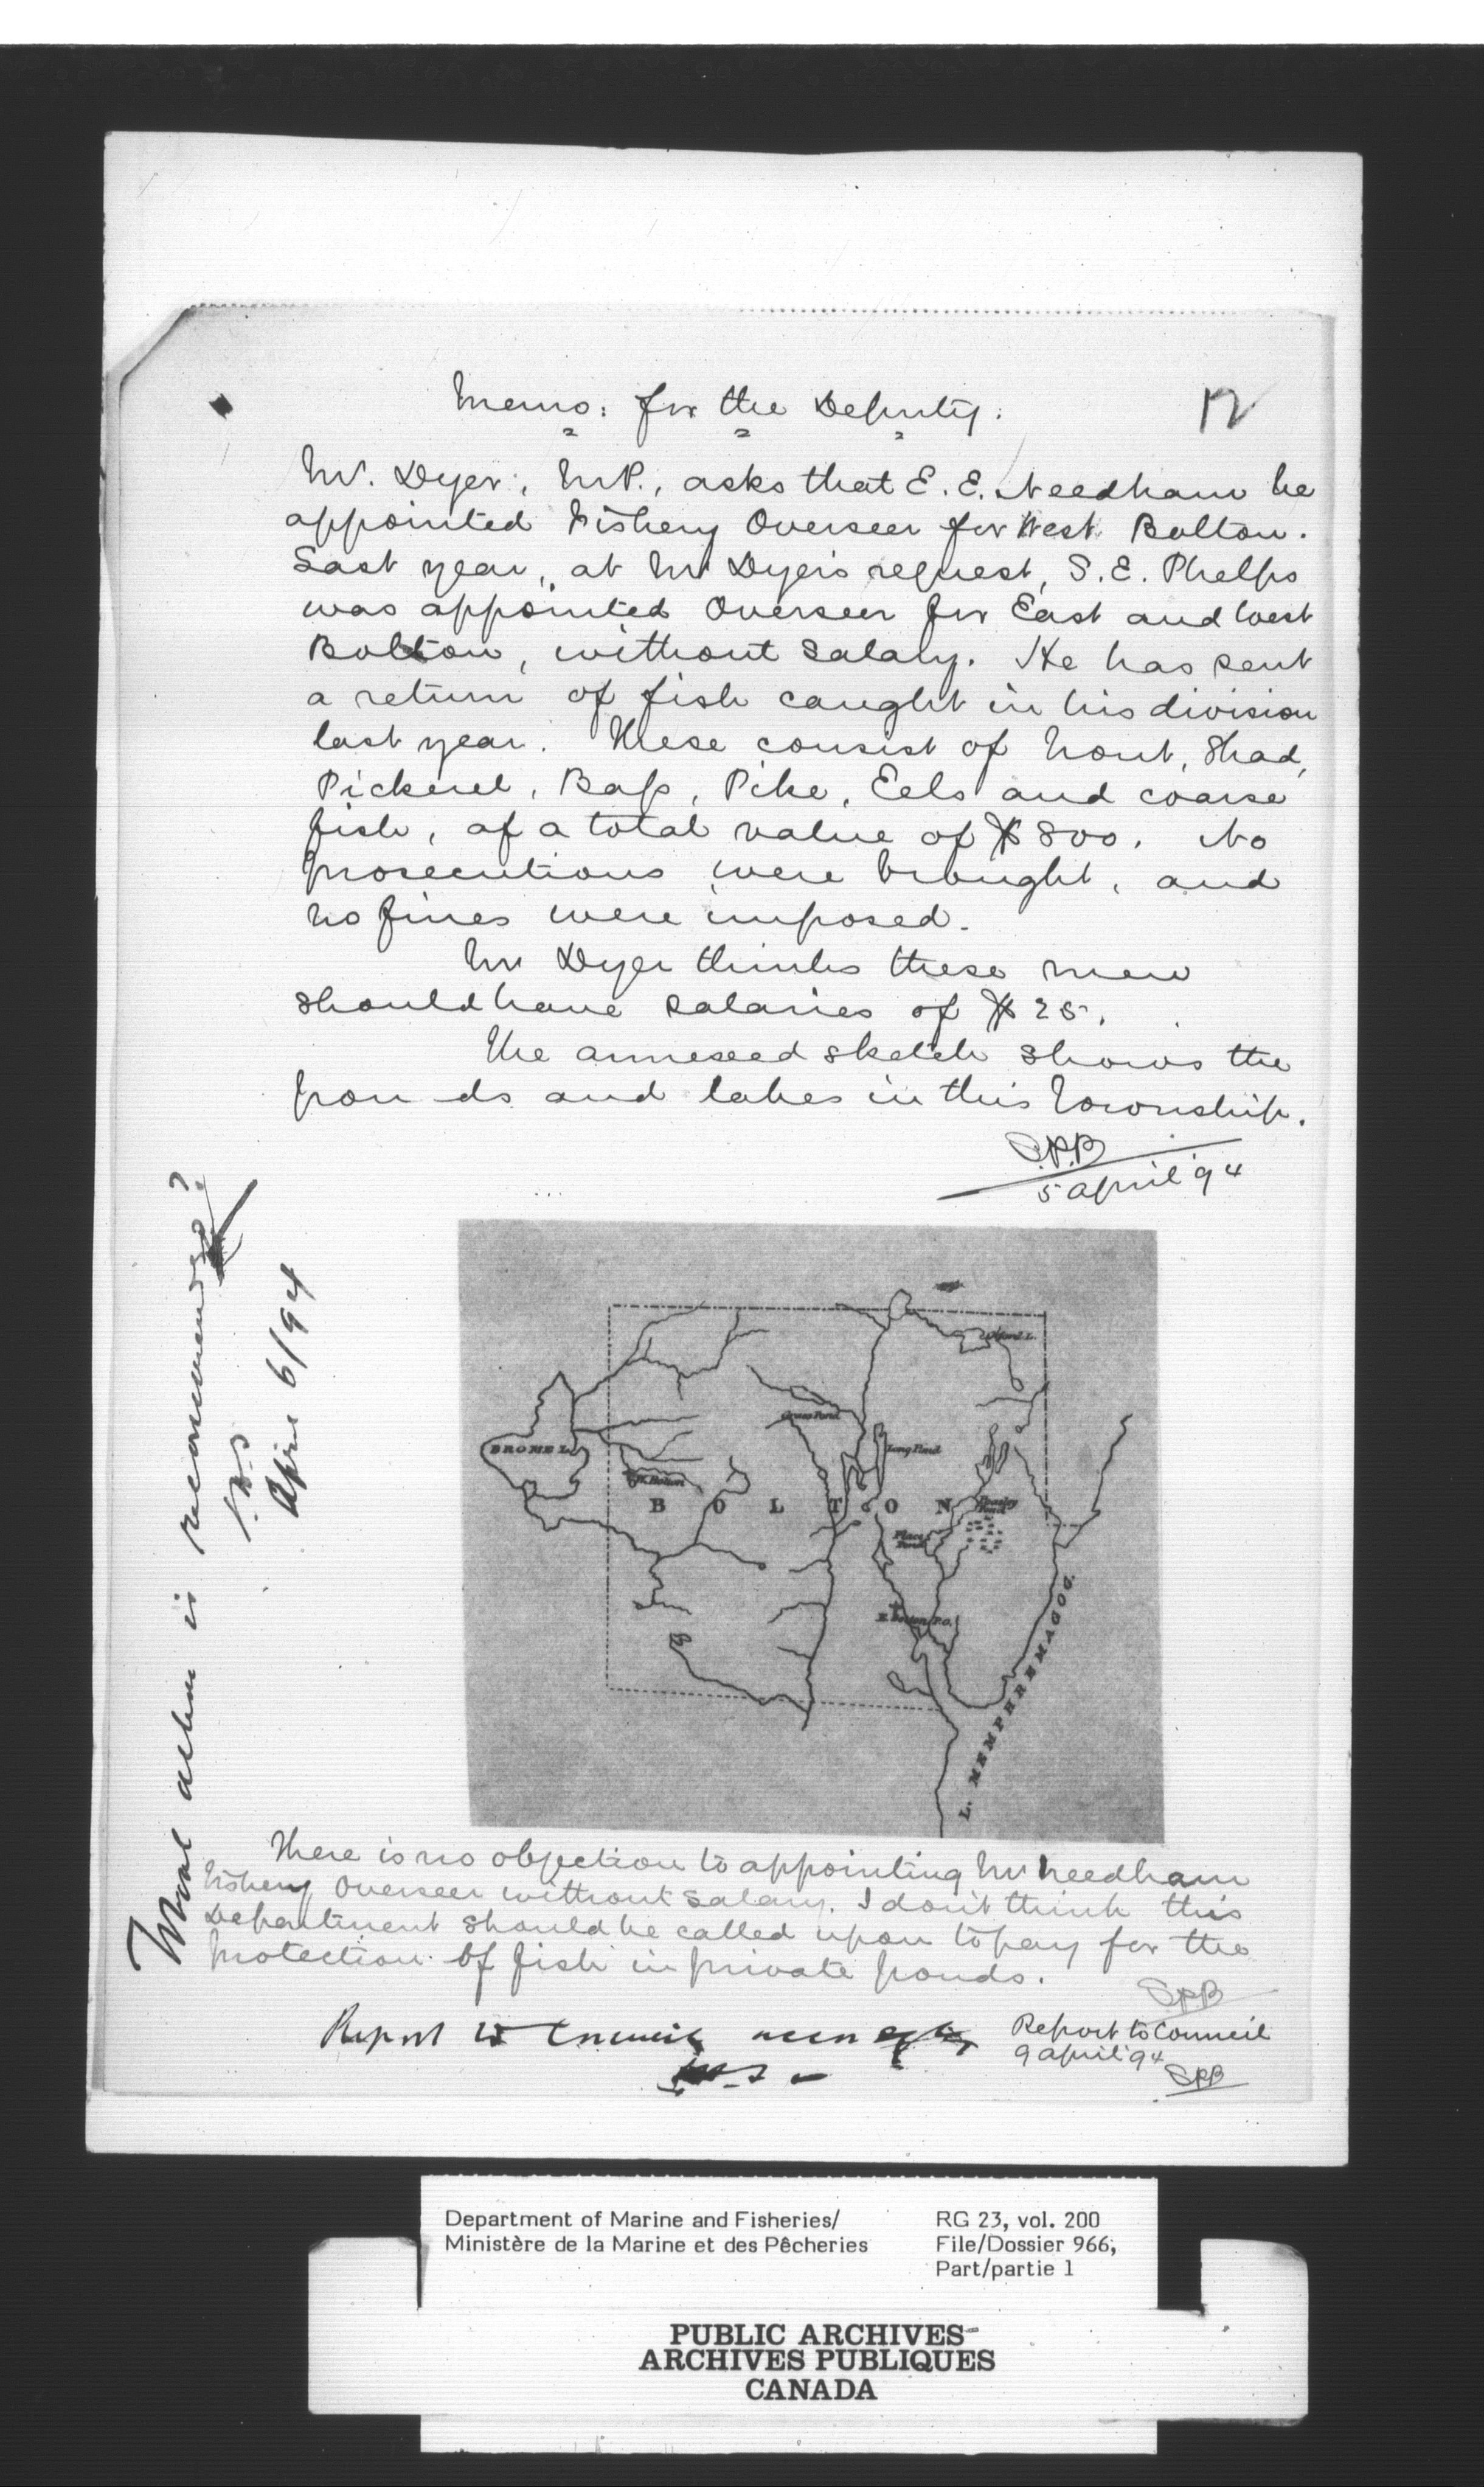 Memo: for the Deputy.
12
Mr. Dyer, M.P., asks that E. E. Needham be
appointed Fishery Overseer for West Bolton.
Last year, at Mr Dyer's request, S. E. Phelps
was appointed Overseer for East and West
Bolton, without salary. He has sent
a return of fish caught in his division
last year. These consist of Trout, Shad,
Pickerel, Bass, Pike, Eels and coarse
fish, of a total value of $800. No
prosecutions were brought, and
no fines were imposed.
Mr Dyer thinks these men
should have salaries of $25.
The annexed sketch shows the
ponds and lakes in this Township.
S.P.B
5 April '94
What action is recommended?
April 6/94
Orford L.
Grass Pond
Long Pond
BROME L.
W. Bolton
BOLTON
Peasley Pond
Place Pond
E. Bolton P.O.
L. MEMPHREMAGOG.
There is no objection to appointing Mr Needham
Fishery Overseer without salary. I don't think this
Department should be called upon to pay for the
protection of fish in private ponds.
SPB
Report to Council accordingly
Report to Council
9 April '94
SPB
Department of Marine and Fisheries/
Ministère de la Marine et des Pêcheries
RG 23, vol. 200
File/Dossier 966,
Part/partie 1
PUBLIC ARCHIVES
ARCHIVES PUBLIQUES
CANADA